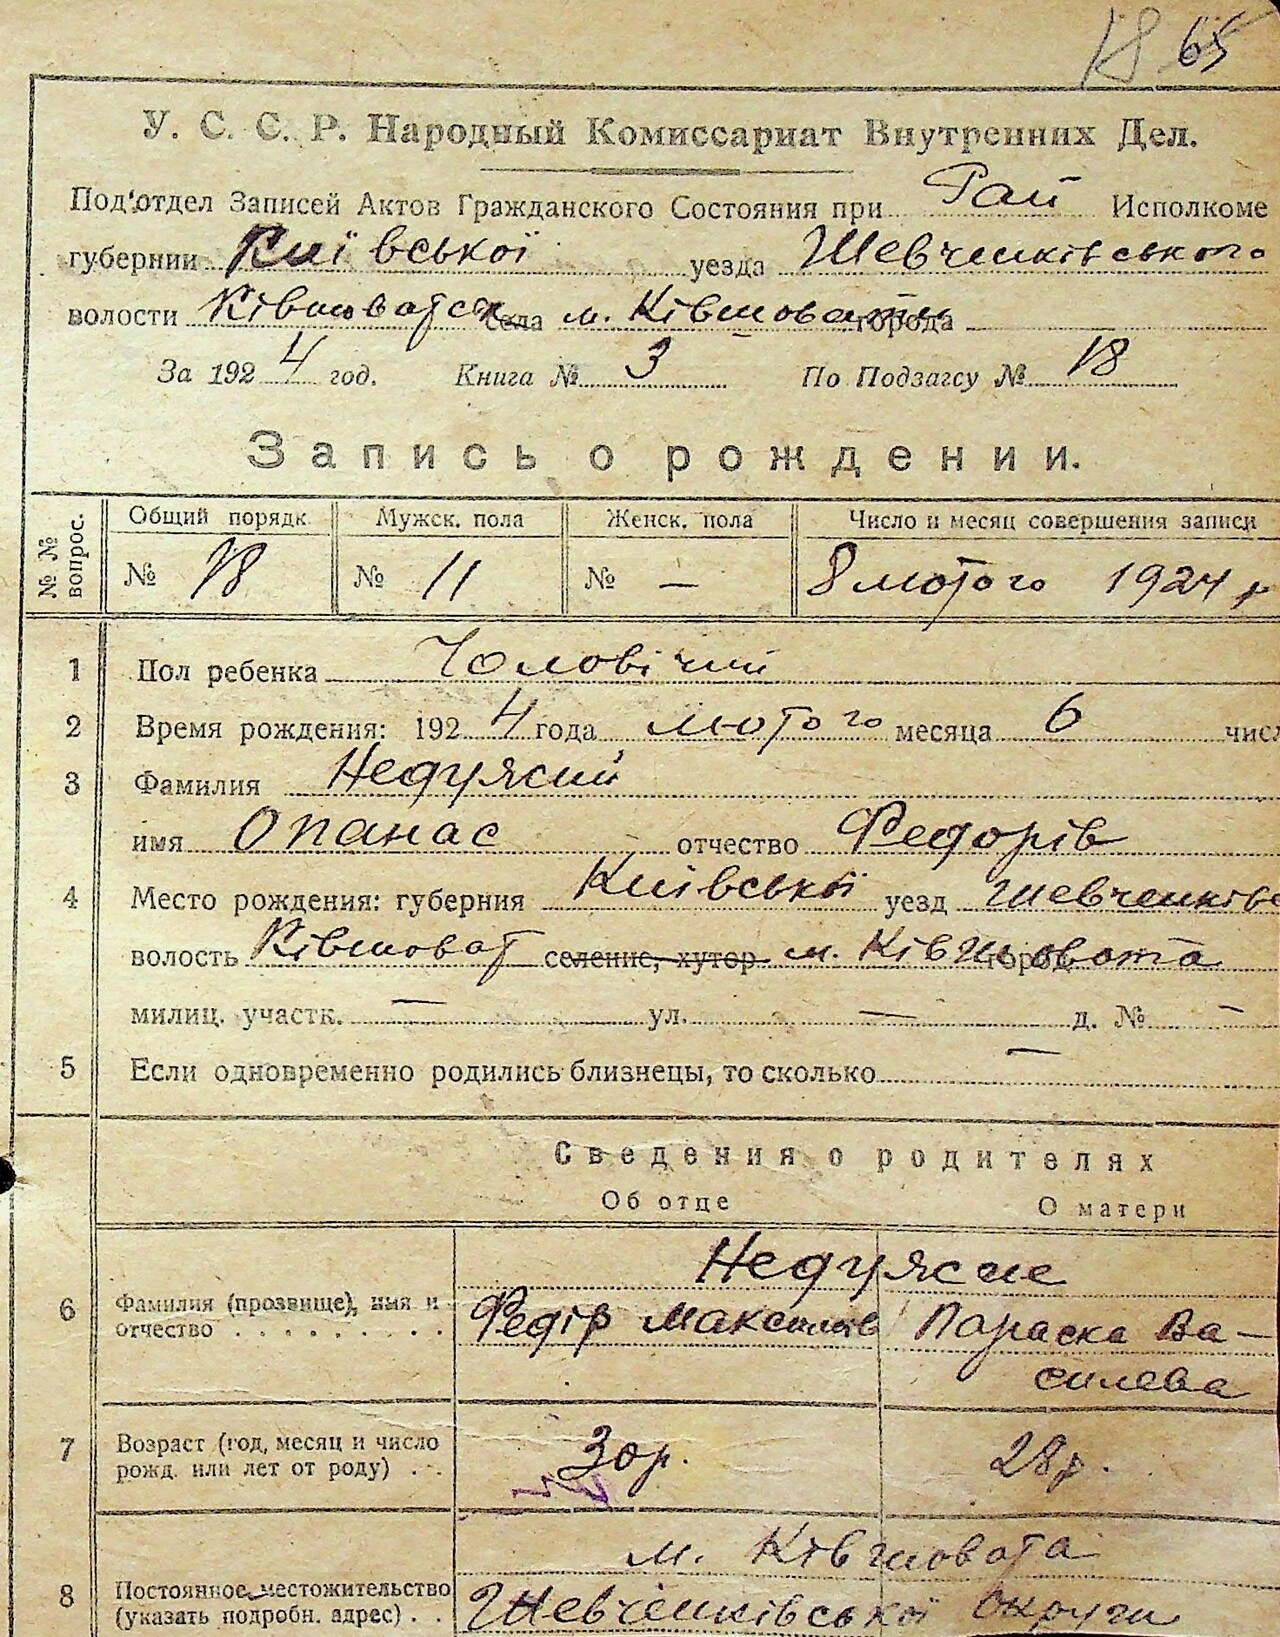 18 65
У. С. С. Р. Народный Комиссариат Внутренних Дел.
Под'отдел Записей Актов Гражданского Состояния при Рай Исполкоме
губернии Київської уезда Шевченківського
волости Ківшоватск села м. Ківшовати города
За 1924 год. Книга № 3 По Подзагсу № 18
Запись о рождении.
№ № вопрос. Общий порядк. Мужск. пола Женск. пола Число и месяц совершения записи
№ 18 № 11 № — 8 лютого 1924 р
1 Пол ребенка Чоловічий
2 Время рождения: 1924 года лютого месяца 6 числ
3 Фамилия Недуясий
имя Опанас отчество Федорів
4 Место рождения: губерния Київської уезд Шевченківс
волость Ківшоват селение, хутор м. Ківшовата город
милиц. участк. — ул. — д. № —
5 Если одновременно родились близнецы, то сколько —
Сведения о родителях
Об отце О матери
Недуясие
6 Фамилия (прозвище), имя и отчество . . . . . . . . . Федір Максимів Параска Ва-
силева
7 Возраст (год, месяц и число рожд. или лет от роду) . . 30р. 28р.
м. Ківшовата
8 Постоянное местожительство (указать подробн. адрес) . . Шевченківської округи